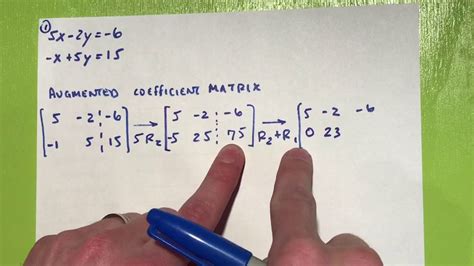 ① 5x-2y=-6
-x+5y=15
AUGMENTED COEFFICIENT MATRIX
[5 -2 ¦ -6] → [5 -2 ¦ -6] → [5 -2 -6
[-1 5 ¦ 15] 5R₂ [-5 25 ¦ 75] R₂+R₁ [0 23